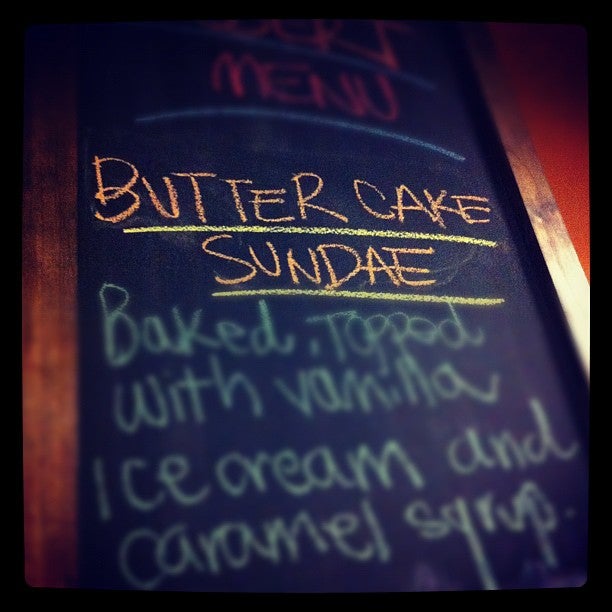 MENU
BUTTER CAKE
SUNDAE
Baked, Topped
with vanilla
Ice cream and
caramel syrup.